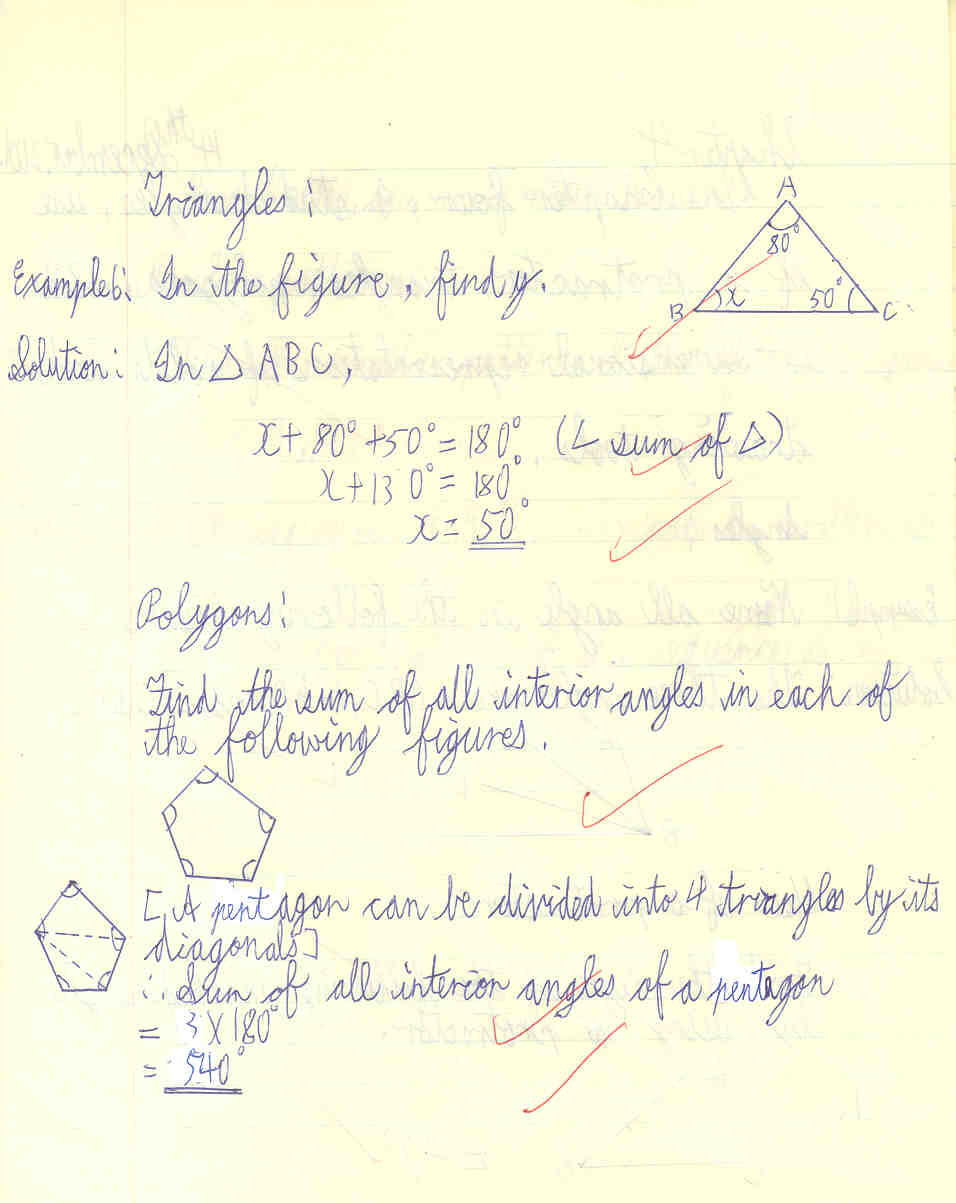 Triangles:
A
80°
B x 50° C
Example 6: In the figure, find y.
Solution: In △ ABC,
x + 80° + 50° = 180° (∠ sum of △)
x + 130° = 180°
x = 50°
Polygons:
Find the sum of all interior angles in each of
the following figures.
[A pentagon can be divided into 4 triangles by its
diagonals]
∴ Sum of all interior angles of a pentagon
= 3 X 180°
= 540°